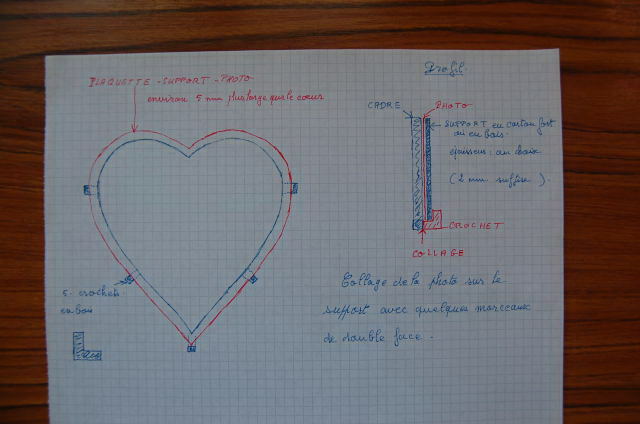 PLAQUETTE - SUPPORT - PHOTO
environ 5 mm plus large que le cœur
Profil.
CADRE
PHOTO
SUPPORT en carton fort
ou en bois.
épaisseur : au choix
(2 mm. suffise).
CROCHET
COLLAGE
5 crochets
en bois
Collage de la photo sur le
support avec quelques morceaux
de double face.